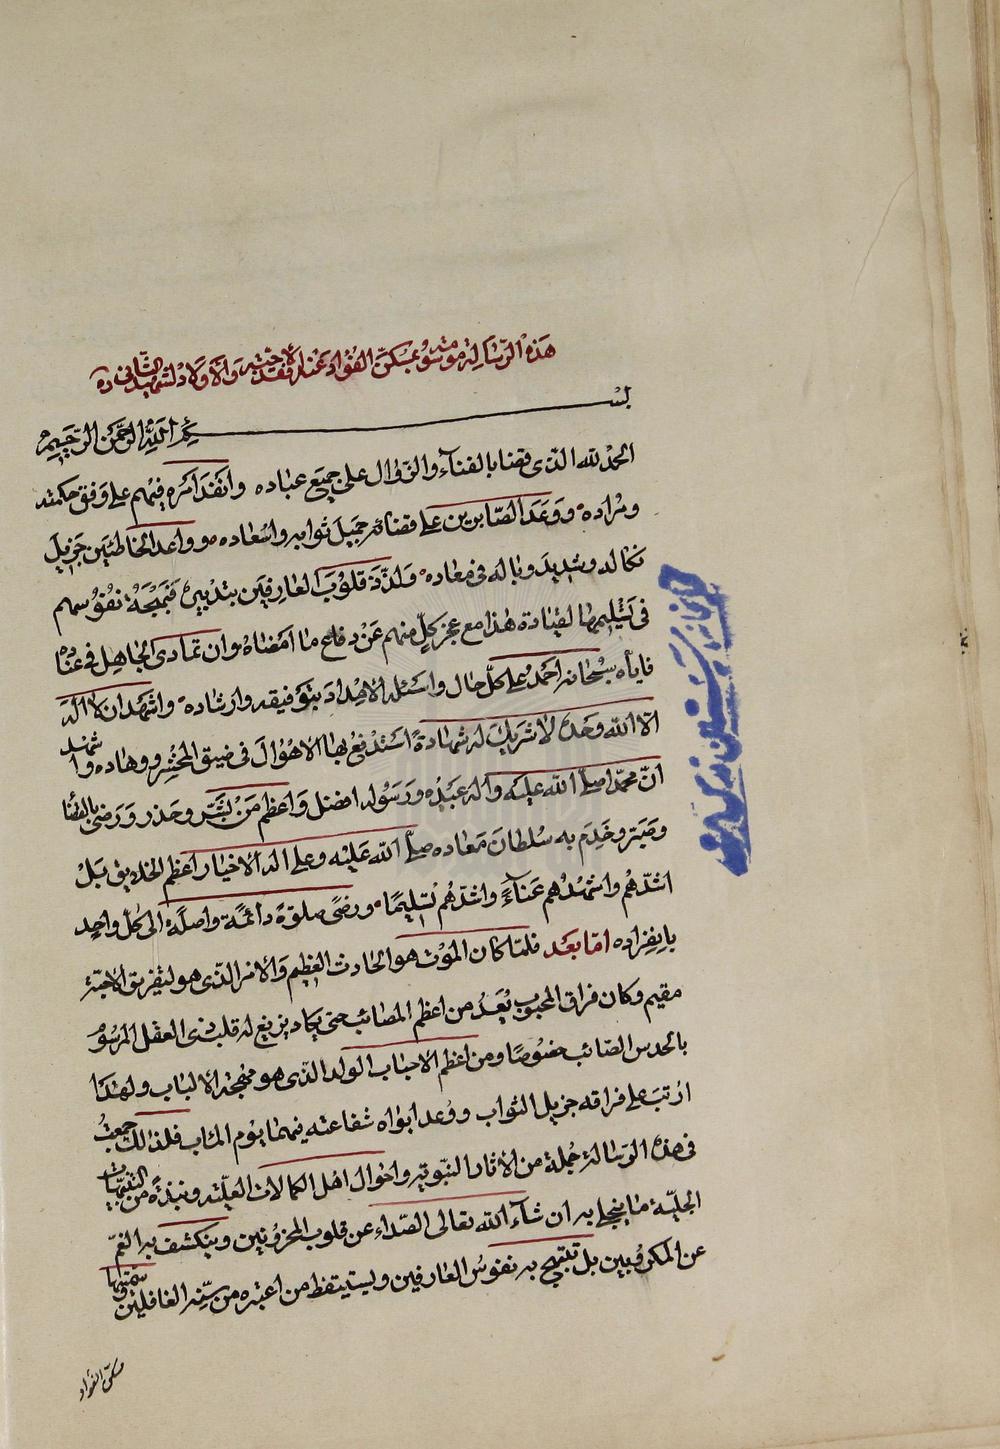 هذه الرسالة موسومة بمسكن الفؤاد عند فقد الأحبة والأولاد لشهيد الثاني ره
بسم الله الرحمن الرحيم
الحمد لله الذى قضا بالفناء والزوال على جميع عباده وانفذ امره فيهم على وفق حكمته
ومراده ووعد الصابرين على قضائه جميل ثوابه واسعاده وواعد الخاطئين جزيل
نكاله وشديد وباله فى معاده ولذذ قلوب العارفين بتدبيره فبهجة نفوسهم
فى تسليمها لقياده هذا مع عجز كل منهم عن دفاع ما امضاه وان تمادى الجاهل فى عناده
فاياه سبحانه احمد على كل حال واسئله الامداد بتوفيقه وارشاده واشهد ان لا اله
الا الله وحده لا شريك له شهادة استدفع بها الاهوال فى ضيق المحشر ووهاده واشهد
ان محمدا صلى الله عليه وآله عبده ورسوله افضل واعظم من بشر وحذر ورضى بالقضاء
وصبر وخدم به سلطان معاده صلى الله عليه وعلى اله الاخيار اعظم الخلايق بل
اشدهم عناء واشدهم تسليما ورضى صلوة دائمة واصلة الى كل واحد
بانفراده اما بعد فلما كان الموت هو الحادث العظيم والامر الذى هو لتفريق الاحبة
مقيم وكان فراق المحبوب يعد من اعظم المصائب حتى يكاد يزيغ له قلب ذى العقل المرسوم
بالحدس الصائب خصوصا ومن اعظم الاحباب الولد الذى هو مهجة الالباب ولهذا
ارتب على فراقه جزيل الثواب ووعد ابواه شفاعته فيهما يوم المآب فلذلك جمعت
فى هذه الرسالة جملة من الاثار النبوية واحوال اهل الكمالات العلية ونبذة من التنبيهات
الجلية ما ينجلى به ان شاء الله تعالى الصداء عن قلوب المحزونين وينكشف به الغم
عن المكروبين بل تبتهج به نفوس العارفين ويستيقظ من اعتبره من سنة الغافلين وسميتها
مسكن الفؤاد